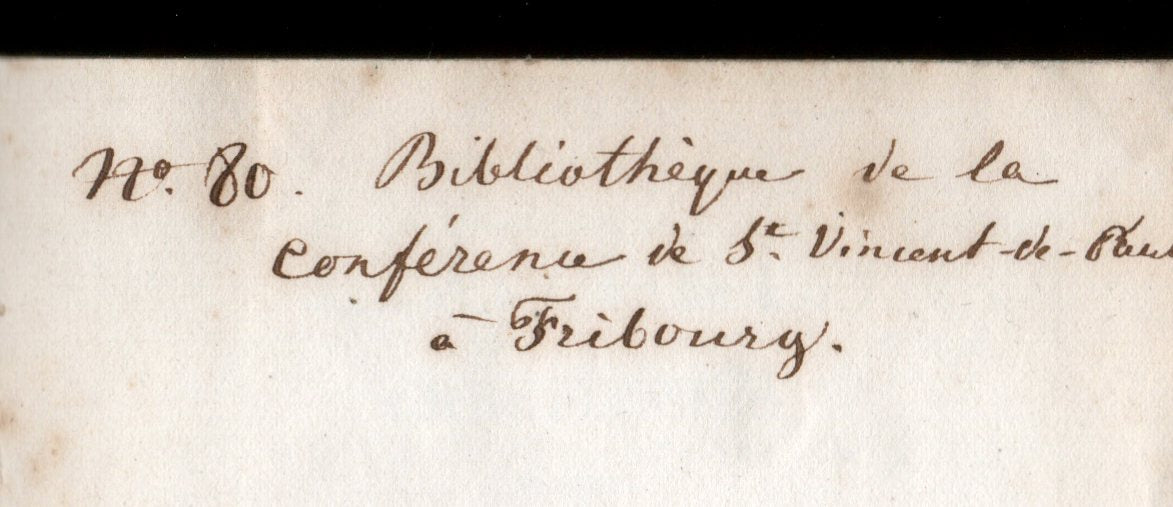 No. 80. Bibliothèque de la
conférence de St. Vincent-de-Paul
à Fribourg.